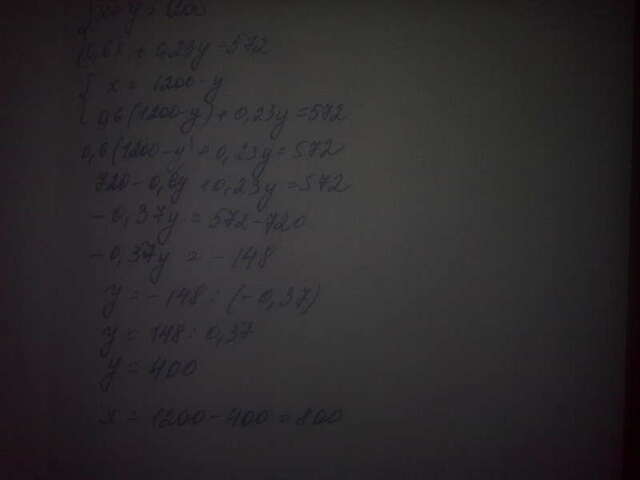 x + y = 1200
0,6x + 0,23y = 572
x = 1200 - y
0,6(1200-y) + 0,23y = 572
0,6(1200-y) + 0,23y = 572
720 - 0,6y + 0,23y = 572
-0,37y = 572 - 720
-0,37y = -148
y = -148 : (-0,37)
y = 148 : 0,37
y = 400
x = 1200 - 400 = 800